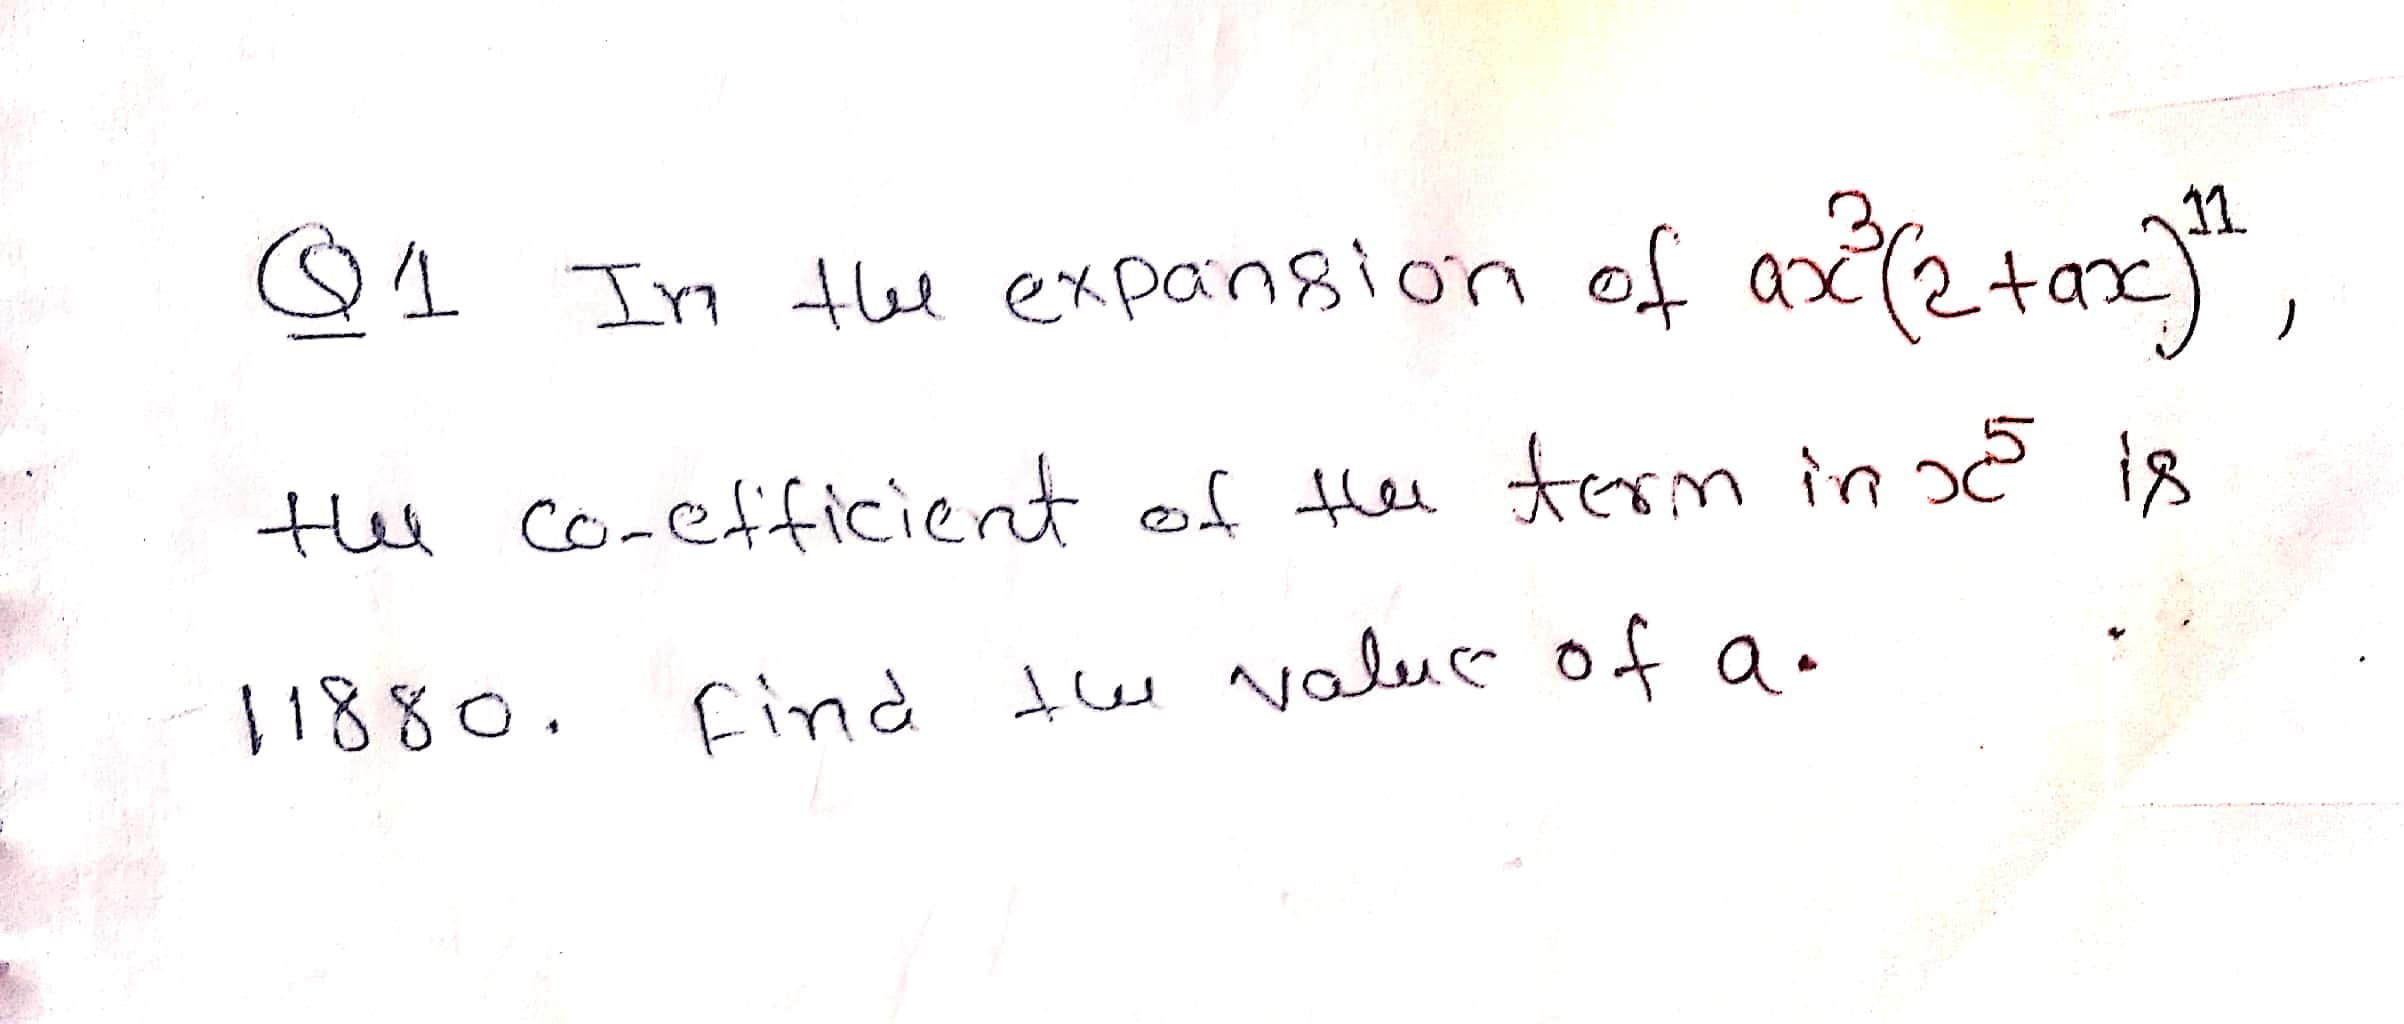 Q1 In the expansion of ax³(2+ax)¹¹,
the co-efficient of the term in x⁵ is
11880. Find the value of a.